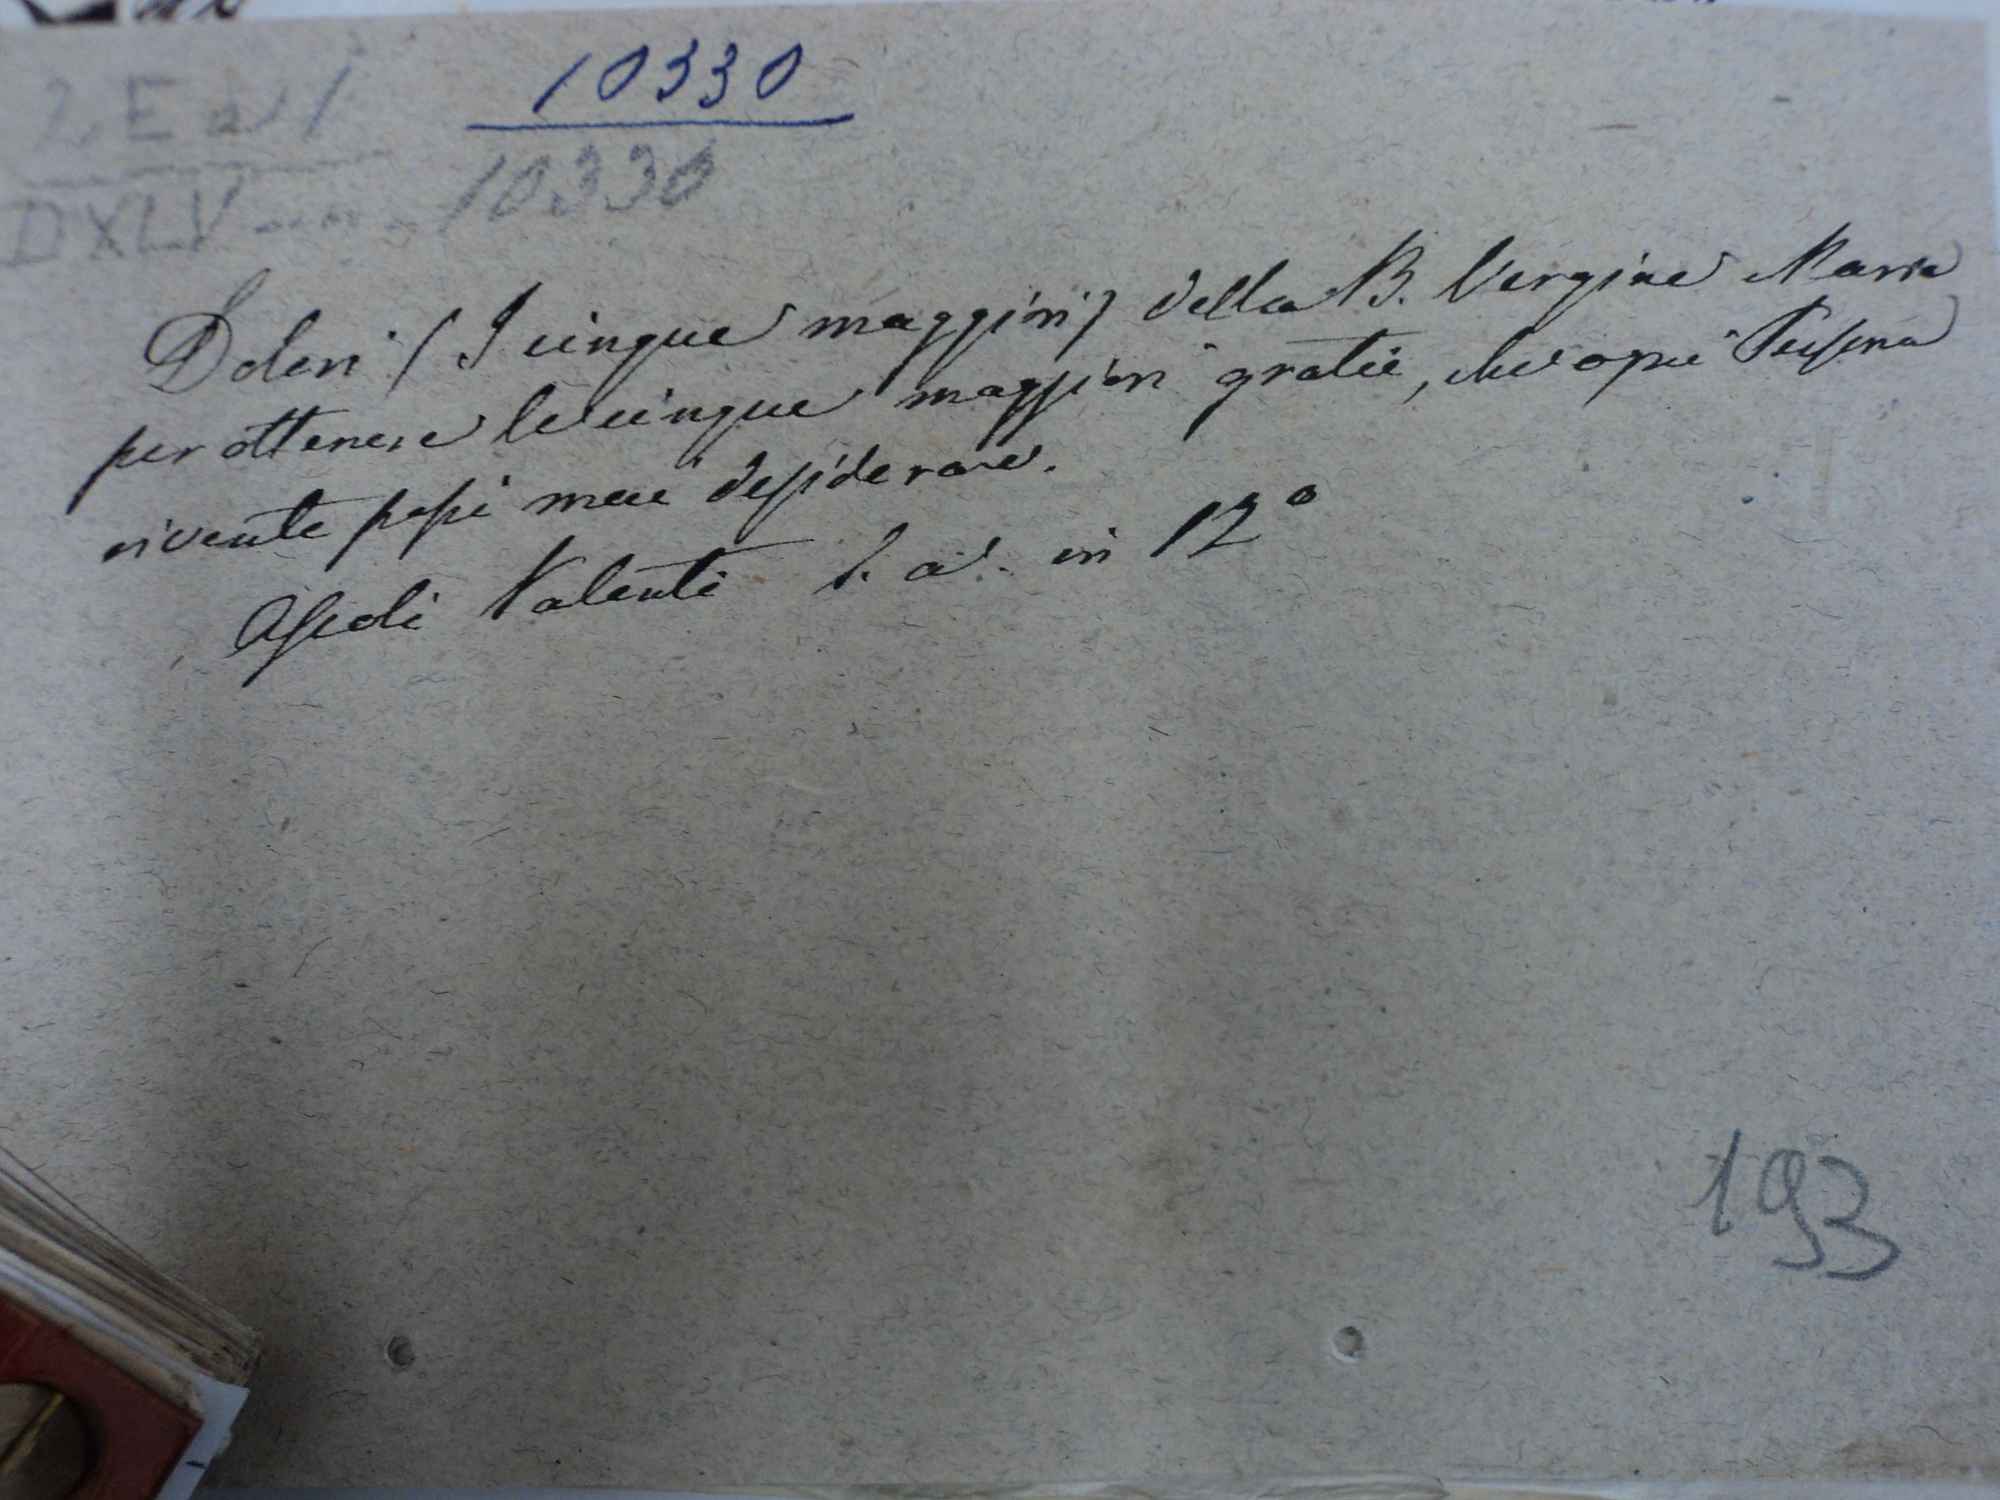 10330
DXLV 10330
Dolori (I cinque maggiori) della B. Vergine Maria
per ottenere le cinque maggiori gratie, che ogni Persona
vivente possi mai desiderare.
Ascoli Valenti s. a. in 12°
193